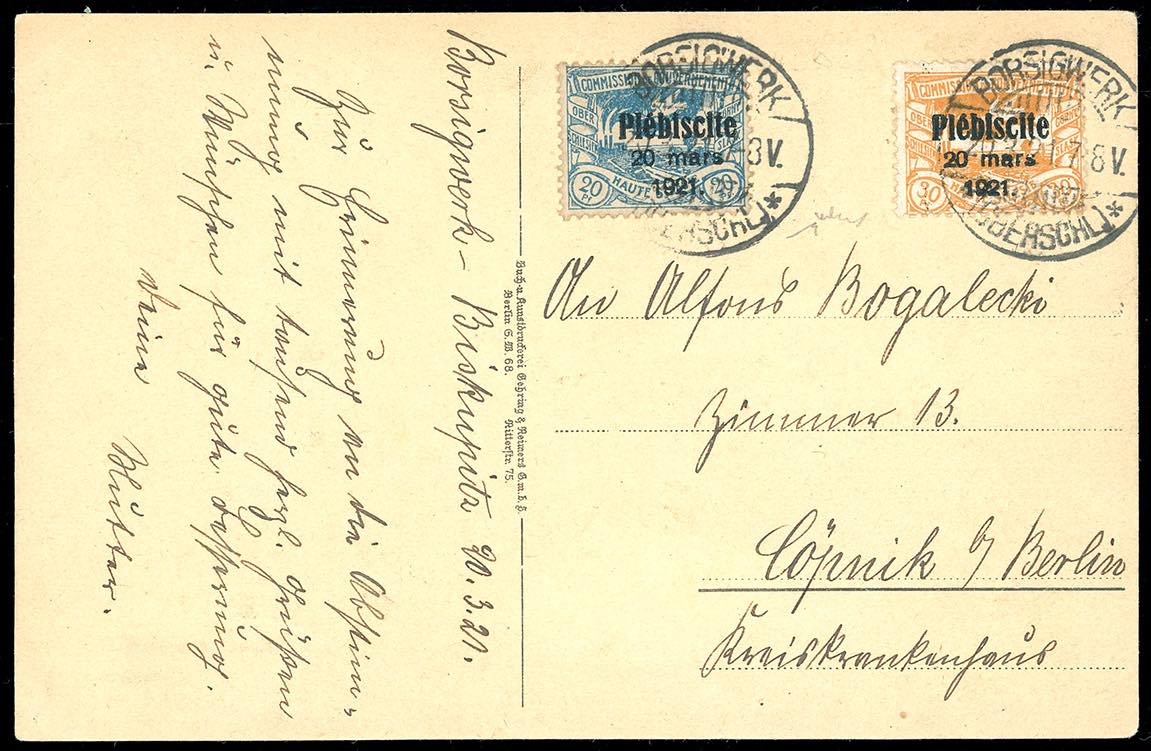 Borsigwerk – Biskupitz 20.3.21.
Zur Erinnerung an die Abstim-
mung mit tausend herzl. Grüßen
u. Wünschen für gute Besserung.
Deine
Mutter.
Buch- u. Kunstdruckerei Gehring & Reimers G.m.b.H.
Berlin S.W. 68. Ritterstr. 75.
COMMISSION GOUVERNEMENT
OBER
SCHLESIEN
Plébiscite
20 mars
1921.
20
HAUTE
20
BORSIGWERK
8V.
(OBERSCHL.)*
COMMISSION
OBER
Plébiscite
20 mars
1921.
30
BORSIGWERK
7-8V.
(OBERSCHL.)*
An Alfons Bogalecki
Zimmer 13.
Cöpnik b/ Berlin
Kreiskrankenhaus